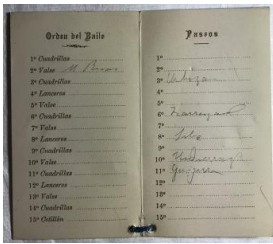 Orden del Baile
1º Cuadrillas
2º Valse
3º Cuadrillas
4º Lanceros
5º Valse
6º Cuadrillas
7º Valse
8º Lanceros
9º Cuadrillas
10º Valse
11º Cuadrillas
12º Lanceros
13º Valse
14º Cuadrillas
15º Cotillón
Paseos
1º
2º
3º
4º
5º
6º
7º
8º
9º
10º
11º
12º
13º
14º
15º